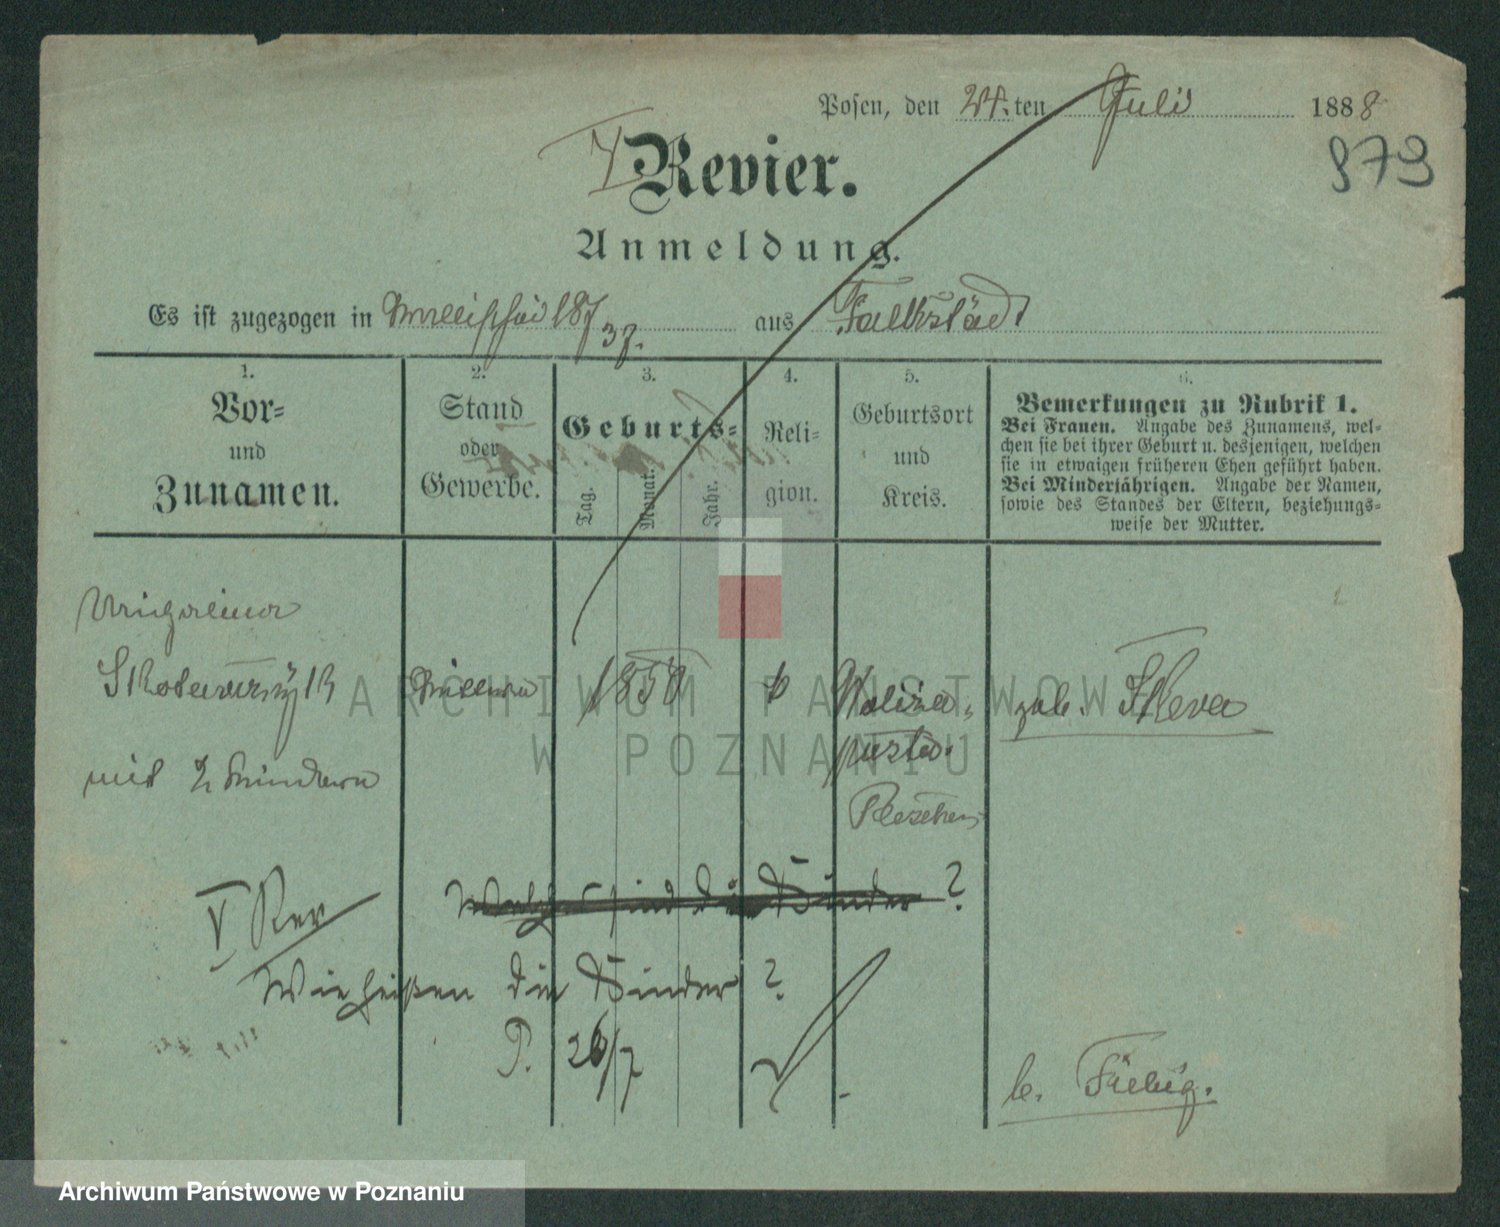 Posen, den 24.ten Juli 1888
879
V Revier.
Anmeldung.
Es ist zugezogen in 187/37. aus Falkstädt
1.
Vor-
und
Zunamen.
2.
Stand
oder
Gewerbe.
3.
Geburts-
Tag.
Monat.
Jahr.
4.
Reli-
gion.
5.
Geburtsort
und
Kreis.
6.
Bemerkungen zu Rubrik 1.
Bei Frauen. Angabe des Zunamens, wel-
chen sie bei ihrer Geburt u. desjenigen, welchen
sie in etwaigen früheren Ehen geführt haben.
Bei Minderjährigen. Angabe der Namen,
sowie des Standes der Eltern, beziehungs-
weise der Mutter.
1858
geb.
mit 2 Kindern
Pleschen
V Rev
Welches sind die Kinder?
Wie heißen die Kinder?
P. 26/7
b. Fiebig.
ARCHIWUM PAŃSTWOWE
W POZNANIU
Archiwum Państwowe w Poznaniu